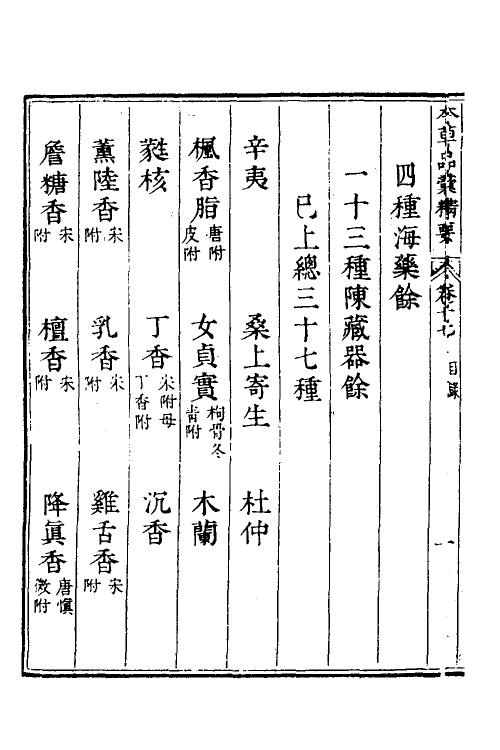 本草品彙精要 卷十七 目錄 一
四種海藥餘
一十三種陳藏器餘
已上總三十七種
辛夷 桑上寄生 杜仲
楓香脂唐附皮附 女貞實枸骨冬青附 木蘭
蕤核 丁香宋附母丁香附 沉香
薰陸香宋附 乳香宋附 雞舌香宋附
詹糖香宋附 檀香宋附 降眞香唐慎微附